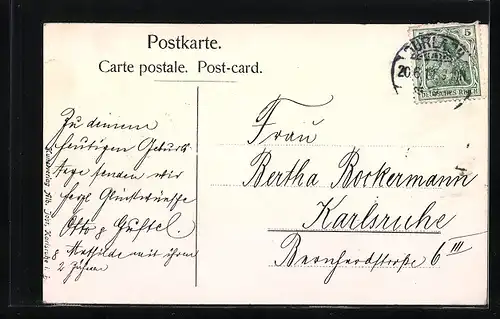 Postkarte.
Carte postale. Post-card.
5
DURLACH
20.6.
DEUTSCHES REICH
Zu deinem
heutigen Geburts
tage senden wir
herzl Glückwünsche
Otto & Gustel.
& Mathilde mit ihren
2 Zähnen
Frau
Bertha Bockermann
Karlsruhe
Bernhardstraße 6 III